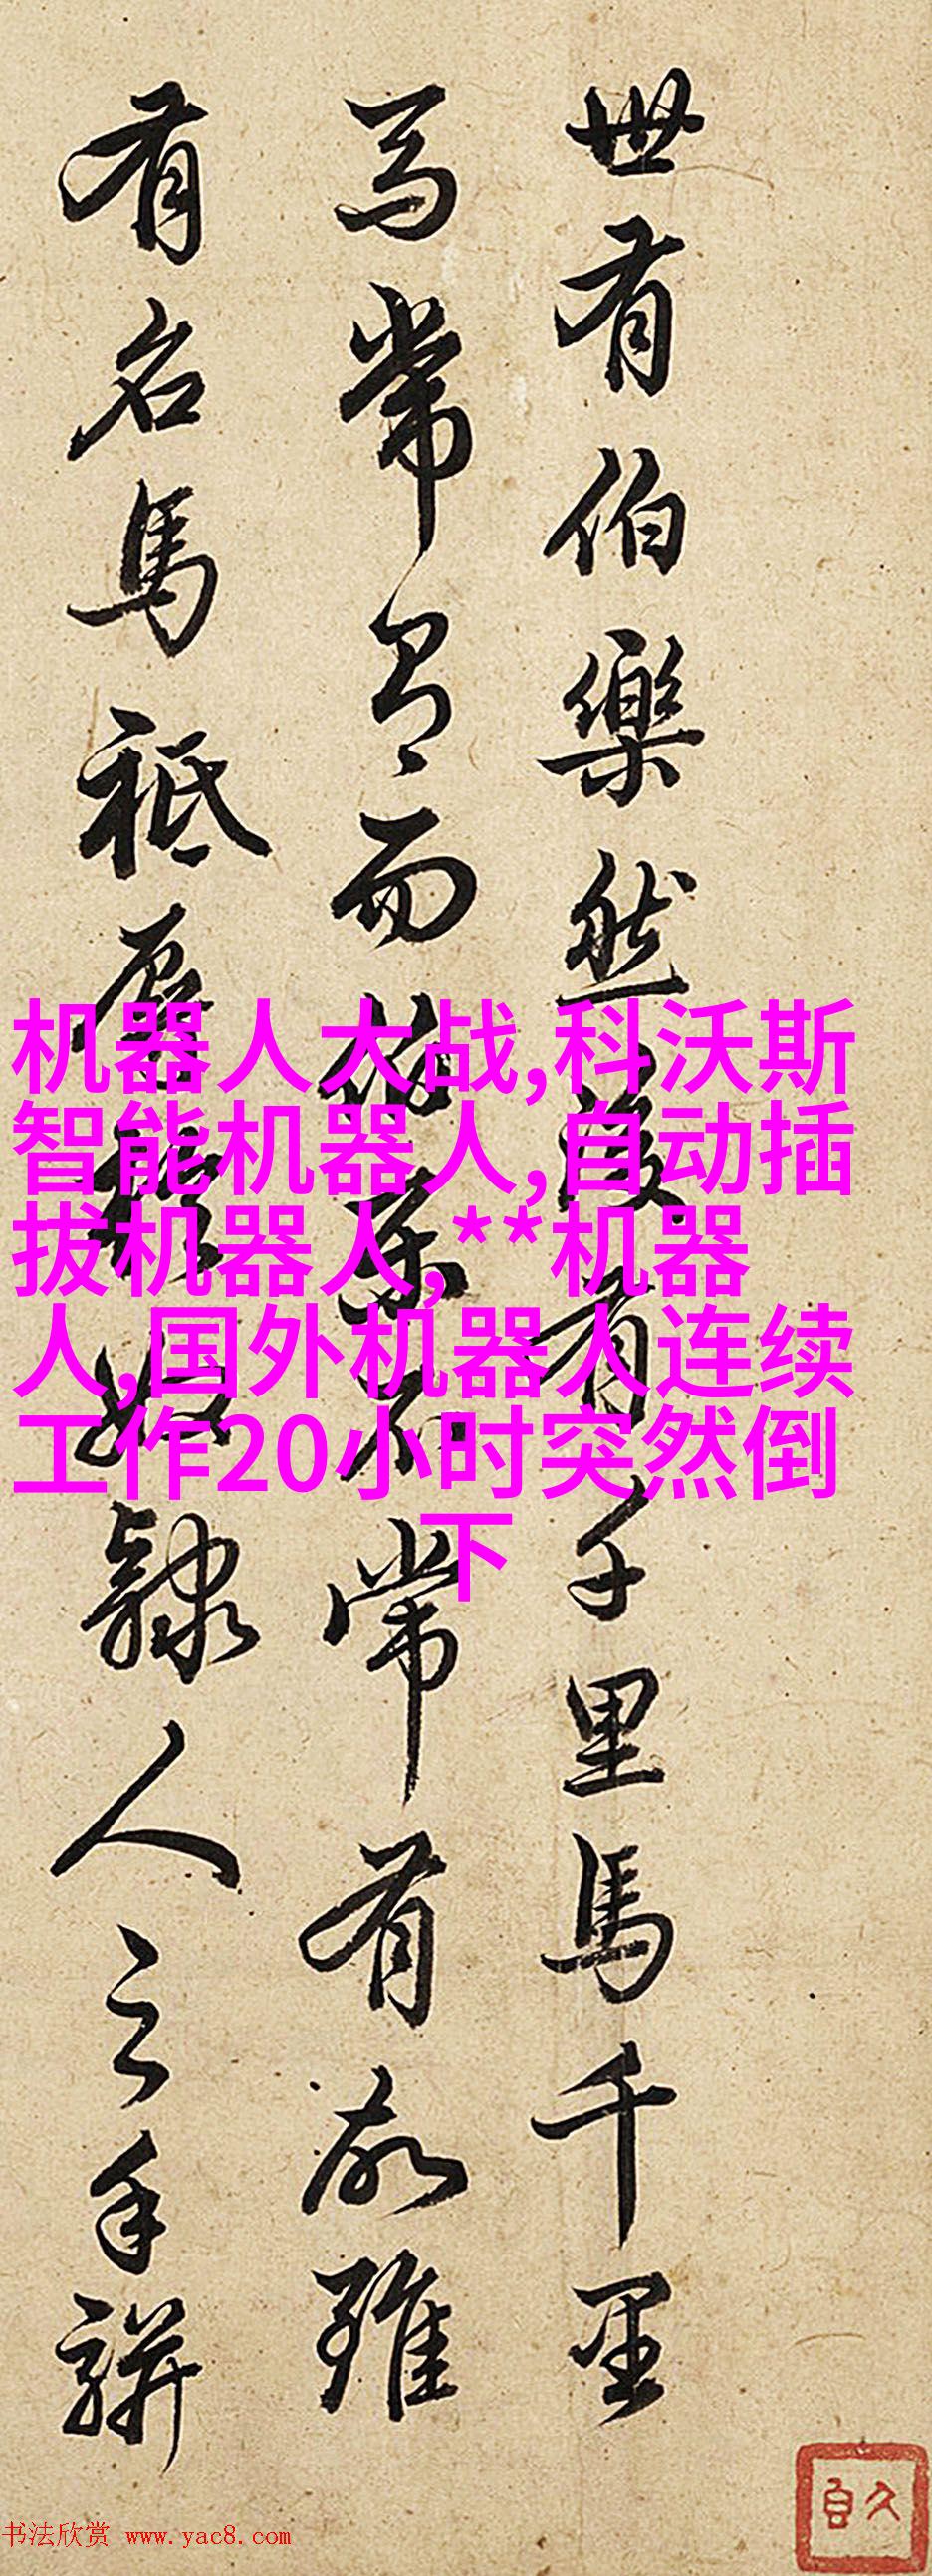 世有伯樂然後有千里馬千里
馬常有而伯樂不常有故雖
有名馬祇辱於奴隸人之手駢
机器人大战,科沃斯
智能机器人,自动插
拔机器人,**机器
人,国外机器人连续
工作20小时突然倒
下
书法欣赏 www.yac8.com